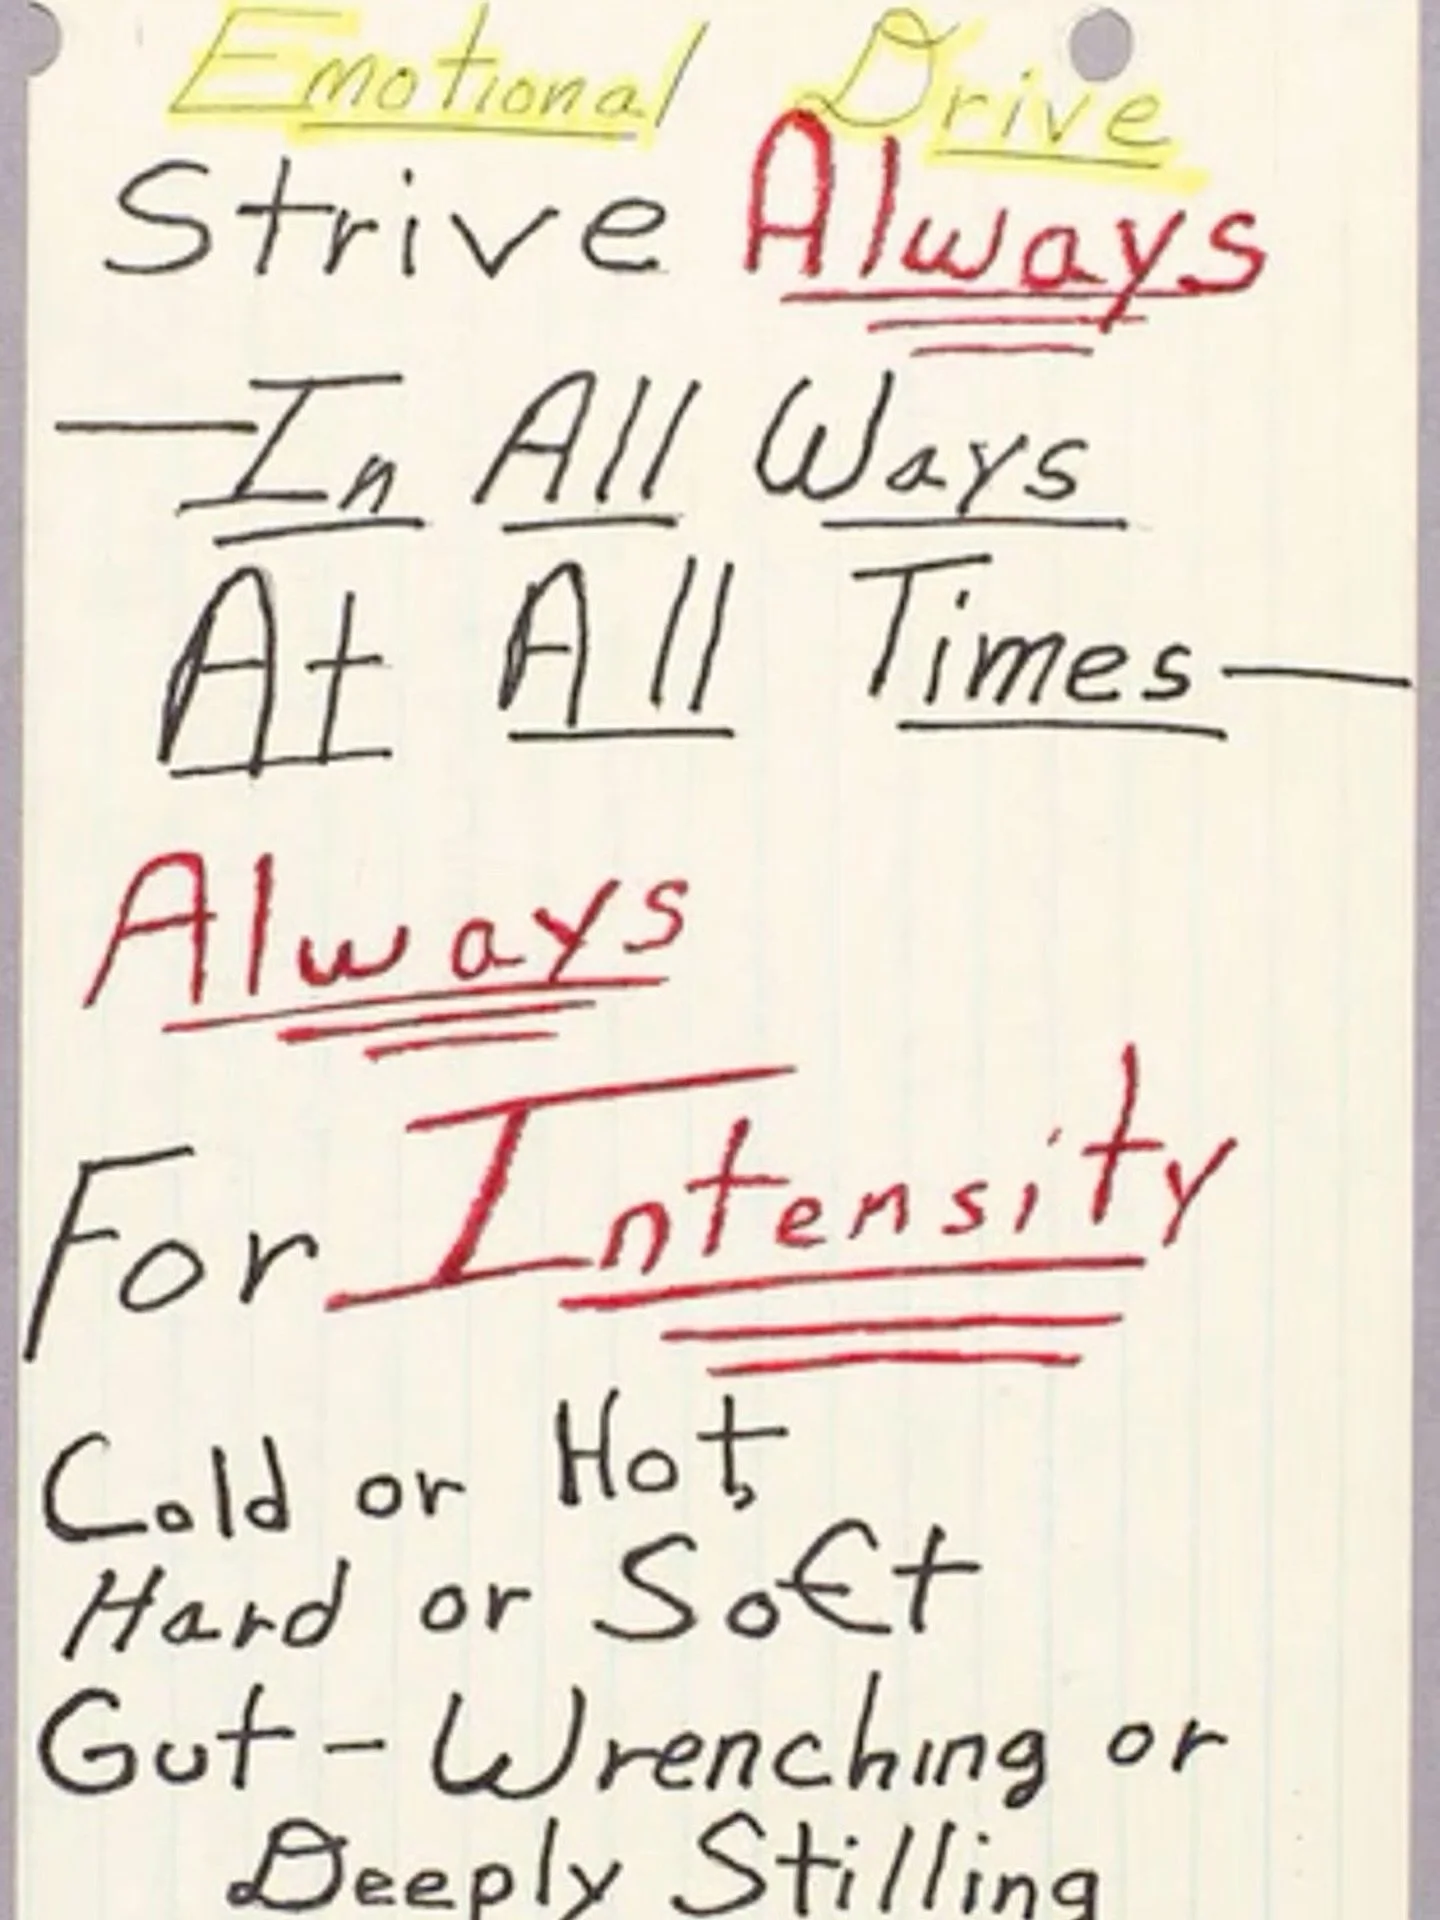 Emotional Drive
Strive Always
—In All Ways
At All Times—
Always
For Intensity
Cold or Hot,
Hard or Soft
Gut-Wrenching or
Deeply Stilling